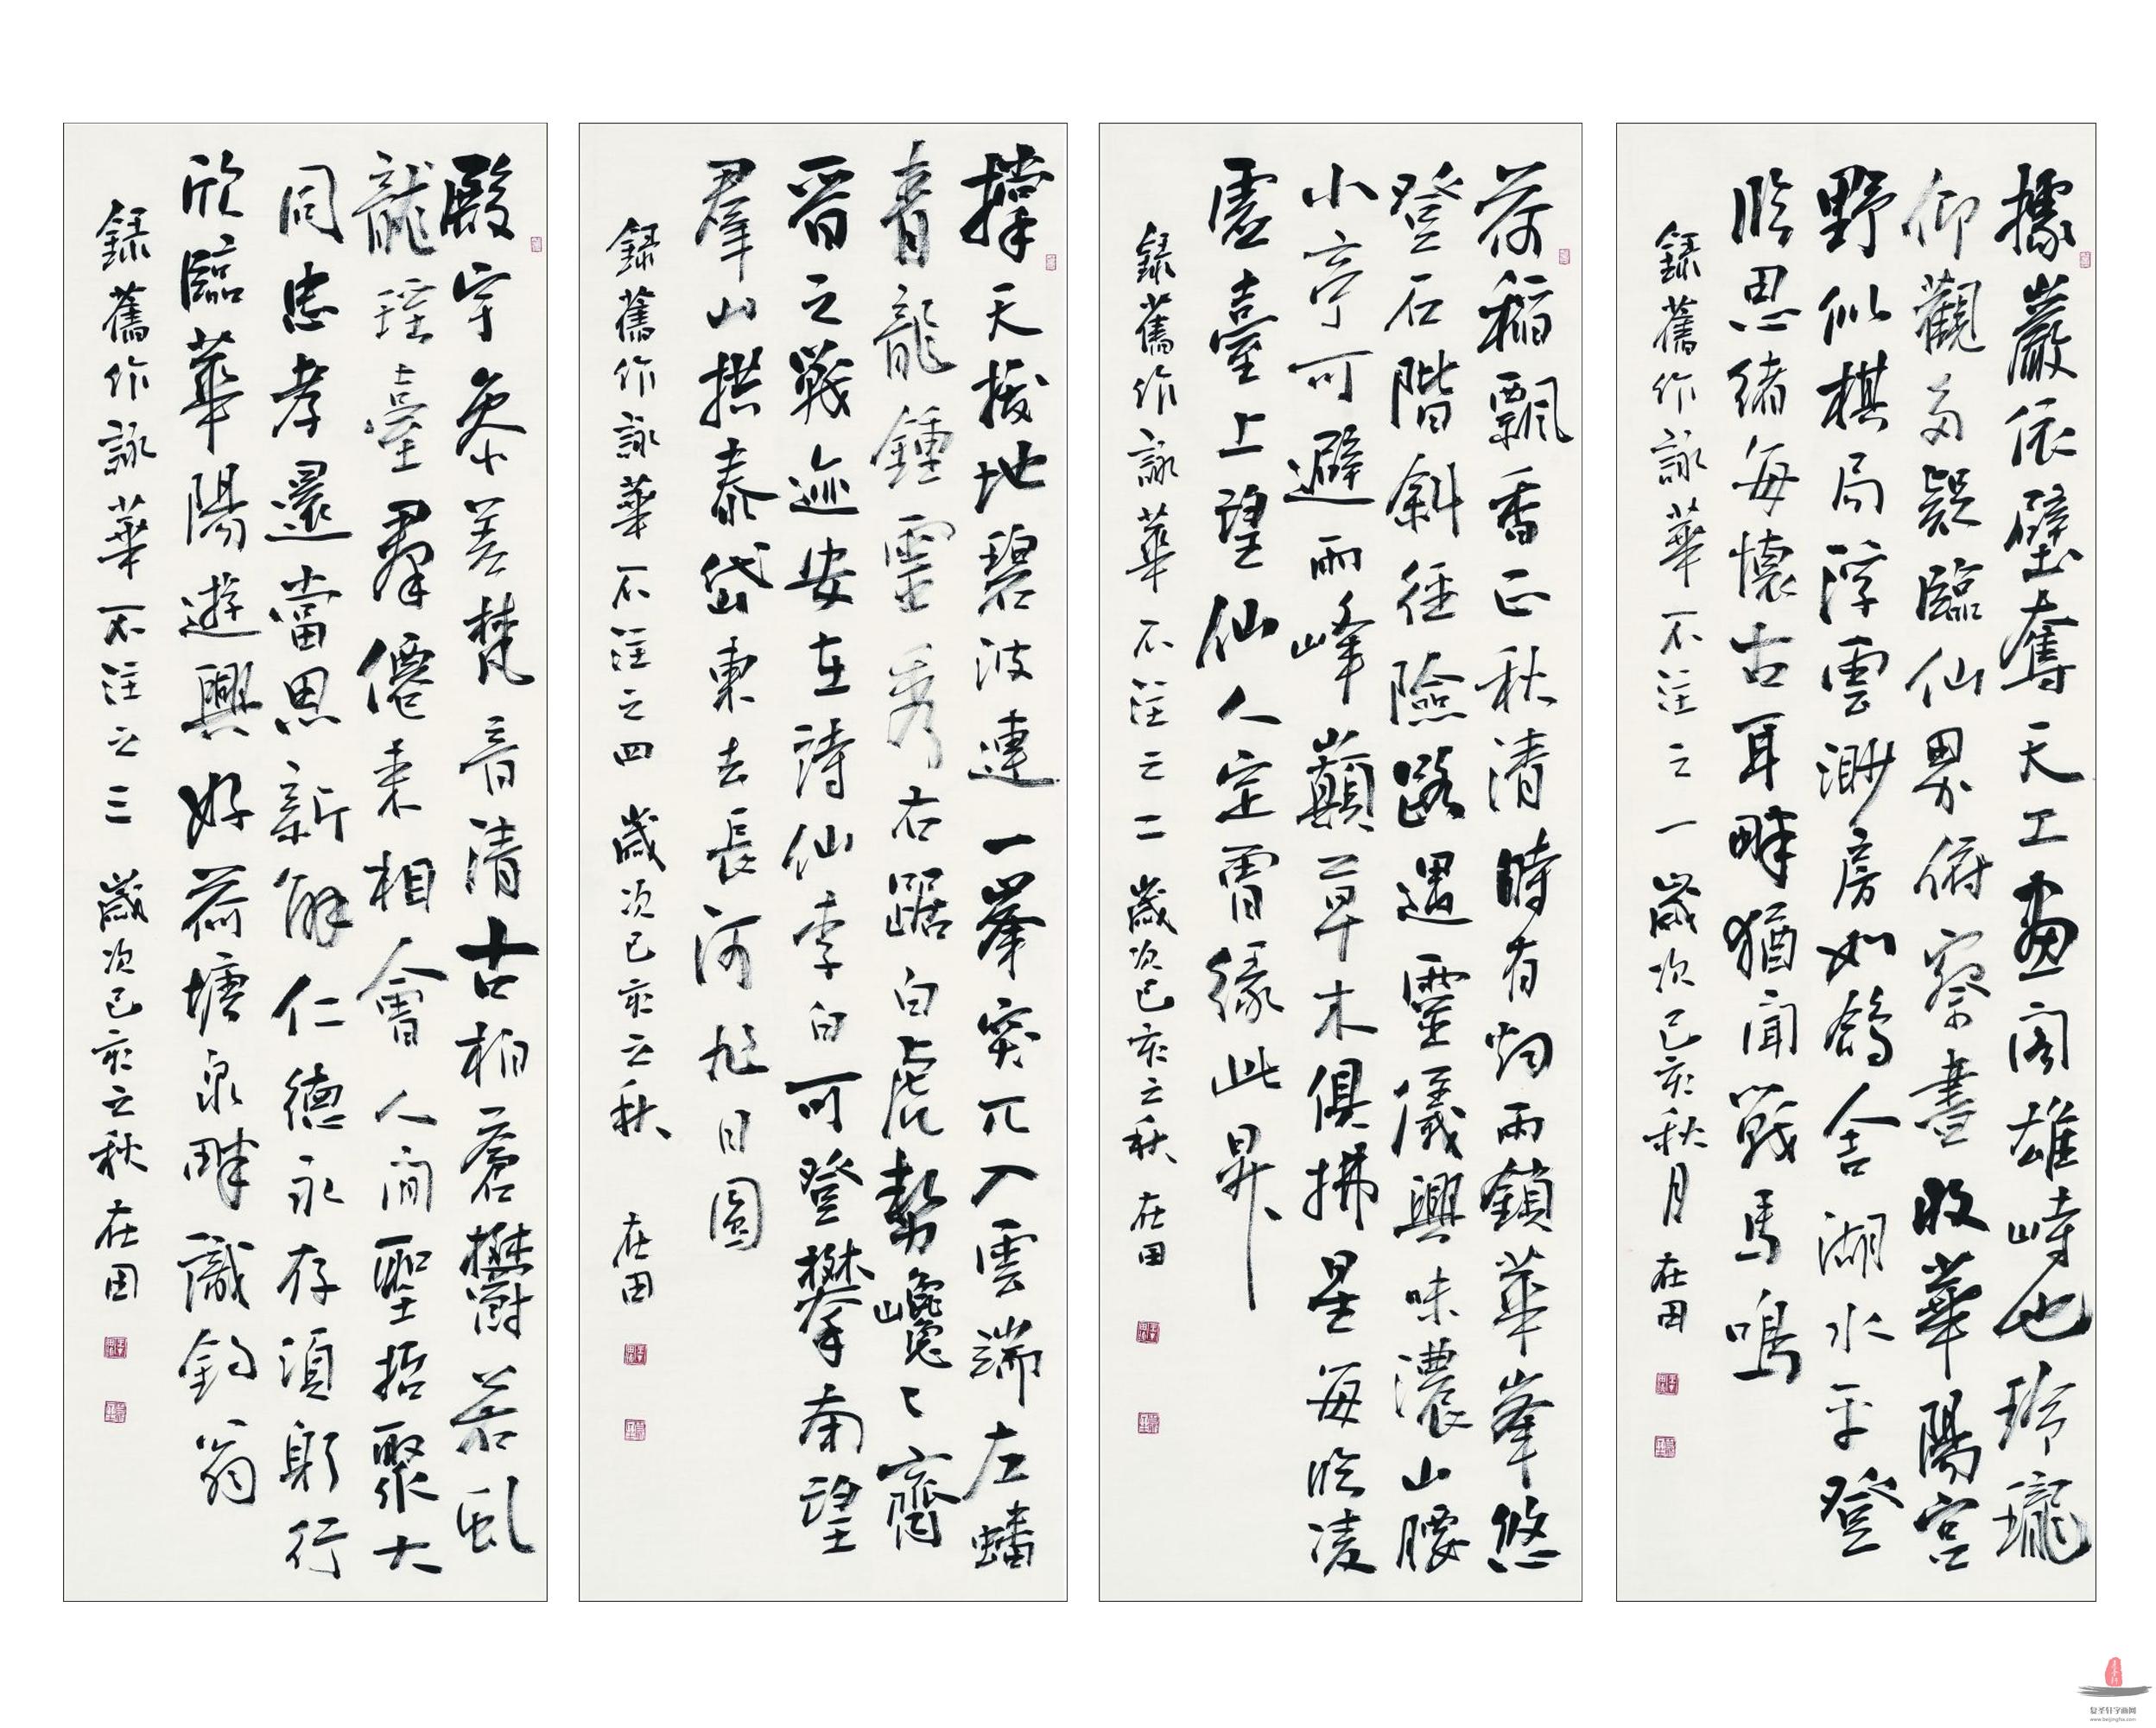 據巖依壁奪天工畫閣雄峙也玲瓏
仰觀多疑臨仙界俯察盡收華陽宮
野似棋局浮雲渺房如鴿舍湖水平登
臨思緒每懷古耳畔猶聞戰馬鳴
錄舊作詠華不注之一歲次己亥秋月在田
荷稻飄香正秋清時有烟雨鎖華峯悠
登石階斜徑險路遇靈儀興味濃山腰
小亭可避雨峰巔草木俱拂星每臨凌
虛臺上望仙人定霄緣此昇
錄舊作詠華不注之二歲次己亥之秋在田
撐天拔地碧波連一峯突兀入雲端左蟠
青龍鍾靈秀右踞白虎勢巉巉齊
晉之戰迹安在詩仙李白可登攀南望
羣山拱泰岱東去長河旭日圓
錄舊作詠華不注之四歲次己亥之秋在田
殿宇參差梵音清古柏蒼欝若虬
龍瑤臺群僊來相會人間聖哲聚大
同忠孝還當思新解仁德永存須躬行
欣臨華陽遊興好荷塘泉畔識釣翁
錄舊作詠華不注之三歲次己亥之秋在田
复圣轩字画网
www.beijingha.com